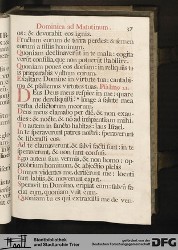 Dominica ad Matutinum. 37
os: & devorabit eos ignis.
Fructum eorum de terra perdes: & semen
eorum a filiis hominum.
Quoniam declinaverunt in te mala: cogita
verunt consilia, quae non potuerunt
Quoniam pones eos dorsum: in reliquiis tu
is praeparabis vultum eorum.
Exaltare Domine in virtute tua: cantabi-
mus & psallemus virtutes tuas.
Deus Deus meus respice in me: quare
me dereliquisti: longe a salute mea
verba delictorum meorum.
Deus meus clamabo per diem, & non exau-
dies: & nocte, & non ad insipientiam mihi.
Tu autem in sancto habitas: laus Israel.
In te speraverunt patres nostri: speraverunt
& liberasti eos.
Ad te clamaverunt & salvi facti sunt: in te
speraverunt, & non sunt confusi.
Ego autem sum vermis, & non homo: op-
probrium hominum, & abjectio plebis.
Omnes videntes me, deriserunt me: locuti
sunt labiis, & moverunt caput.
Speravit in Domino, eripiat eum: salvum fa-
ciat eum, quoniam vult eum.
Quoniam tu es qui extraxisti me de ven-
Stiftsbibliothek
DFG